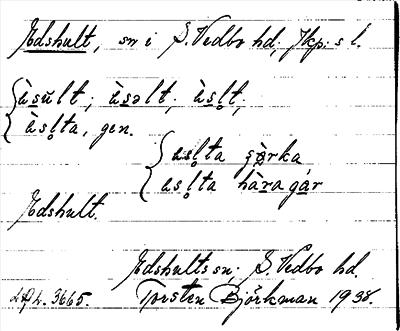 Edshult, sn i S. Vedbo hd, Jkp:s l.
ùsult; ùsəlt; ùsl̥t;
ùsl̥ta, gen.
usl̥ta
usl̥ta hàragár
Edshult.
Edshults sn; S. Vedbo hd.
3665. Torsten Björkman 1938.